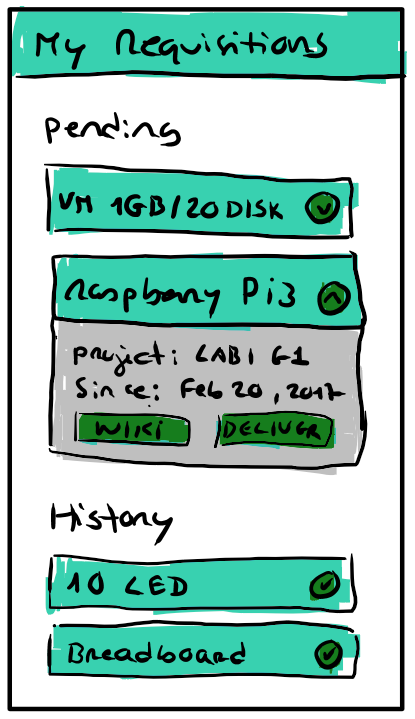 My Requisitions
Pending
VM 1GB/20DISK
Raspberry Pi3
Project: LABI G1
Since: Feb 20, 2017
WIKI
DELIVER
History
10 LED
Breadboard